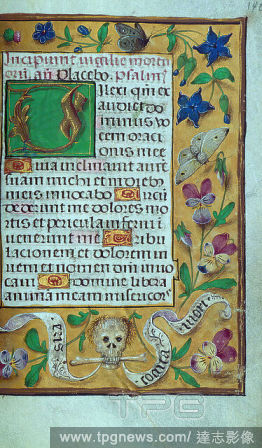 Incipiunt vigilie mortu
oru. añ Placebo. Psalm
Dilexi qm ex
audiet do
minus vo
cem oraci
onis mee
Quia inclinavit aure
suam michi et in dieb
meis invocabo Circu
dederunt me dolores mor
tis et pericula inferni i
venerunt me Tribu
lacionem et dolorem in
veni et nomen dni invo
cavi O domine libera
animam meam misericor
cogita mori
TPG
www.tpgnews.com/達志影像